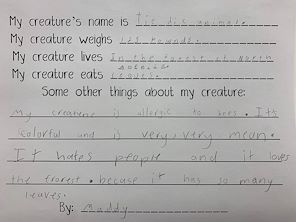 My creature's name is
My creature weighs
My creature lives In the forest of North
america.
My creature eats leaves.
Some other things about my creature:
My creature is allergic to bees. Its
colorful and is very, very mean.
It hates people and it loves
the frorest. becuse it has so many
leaves.
By: Maddy